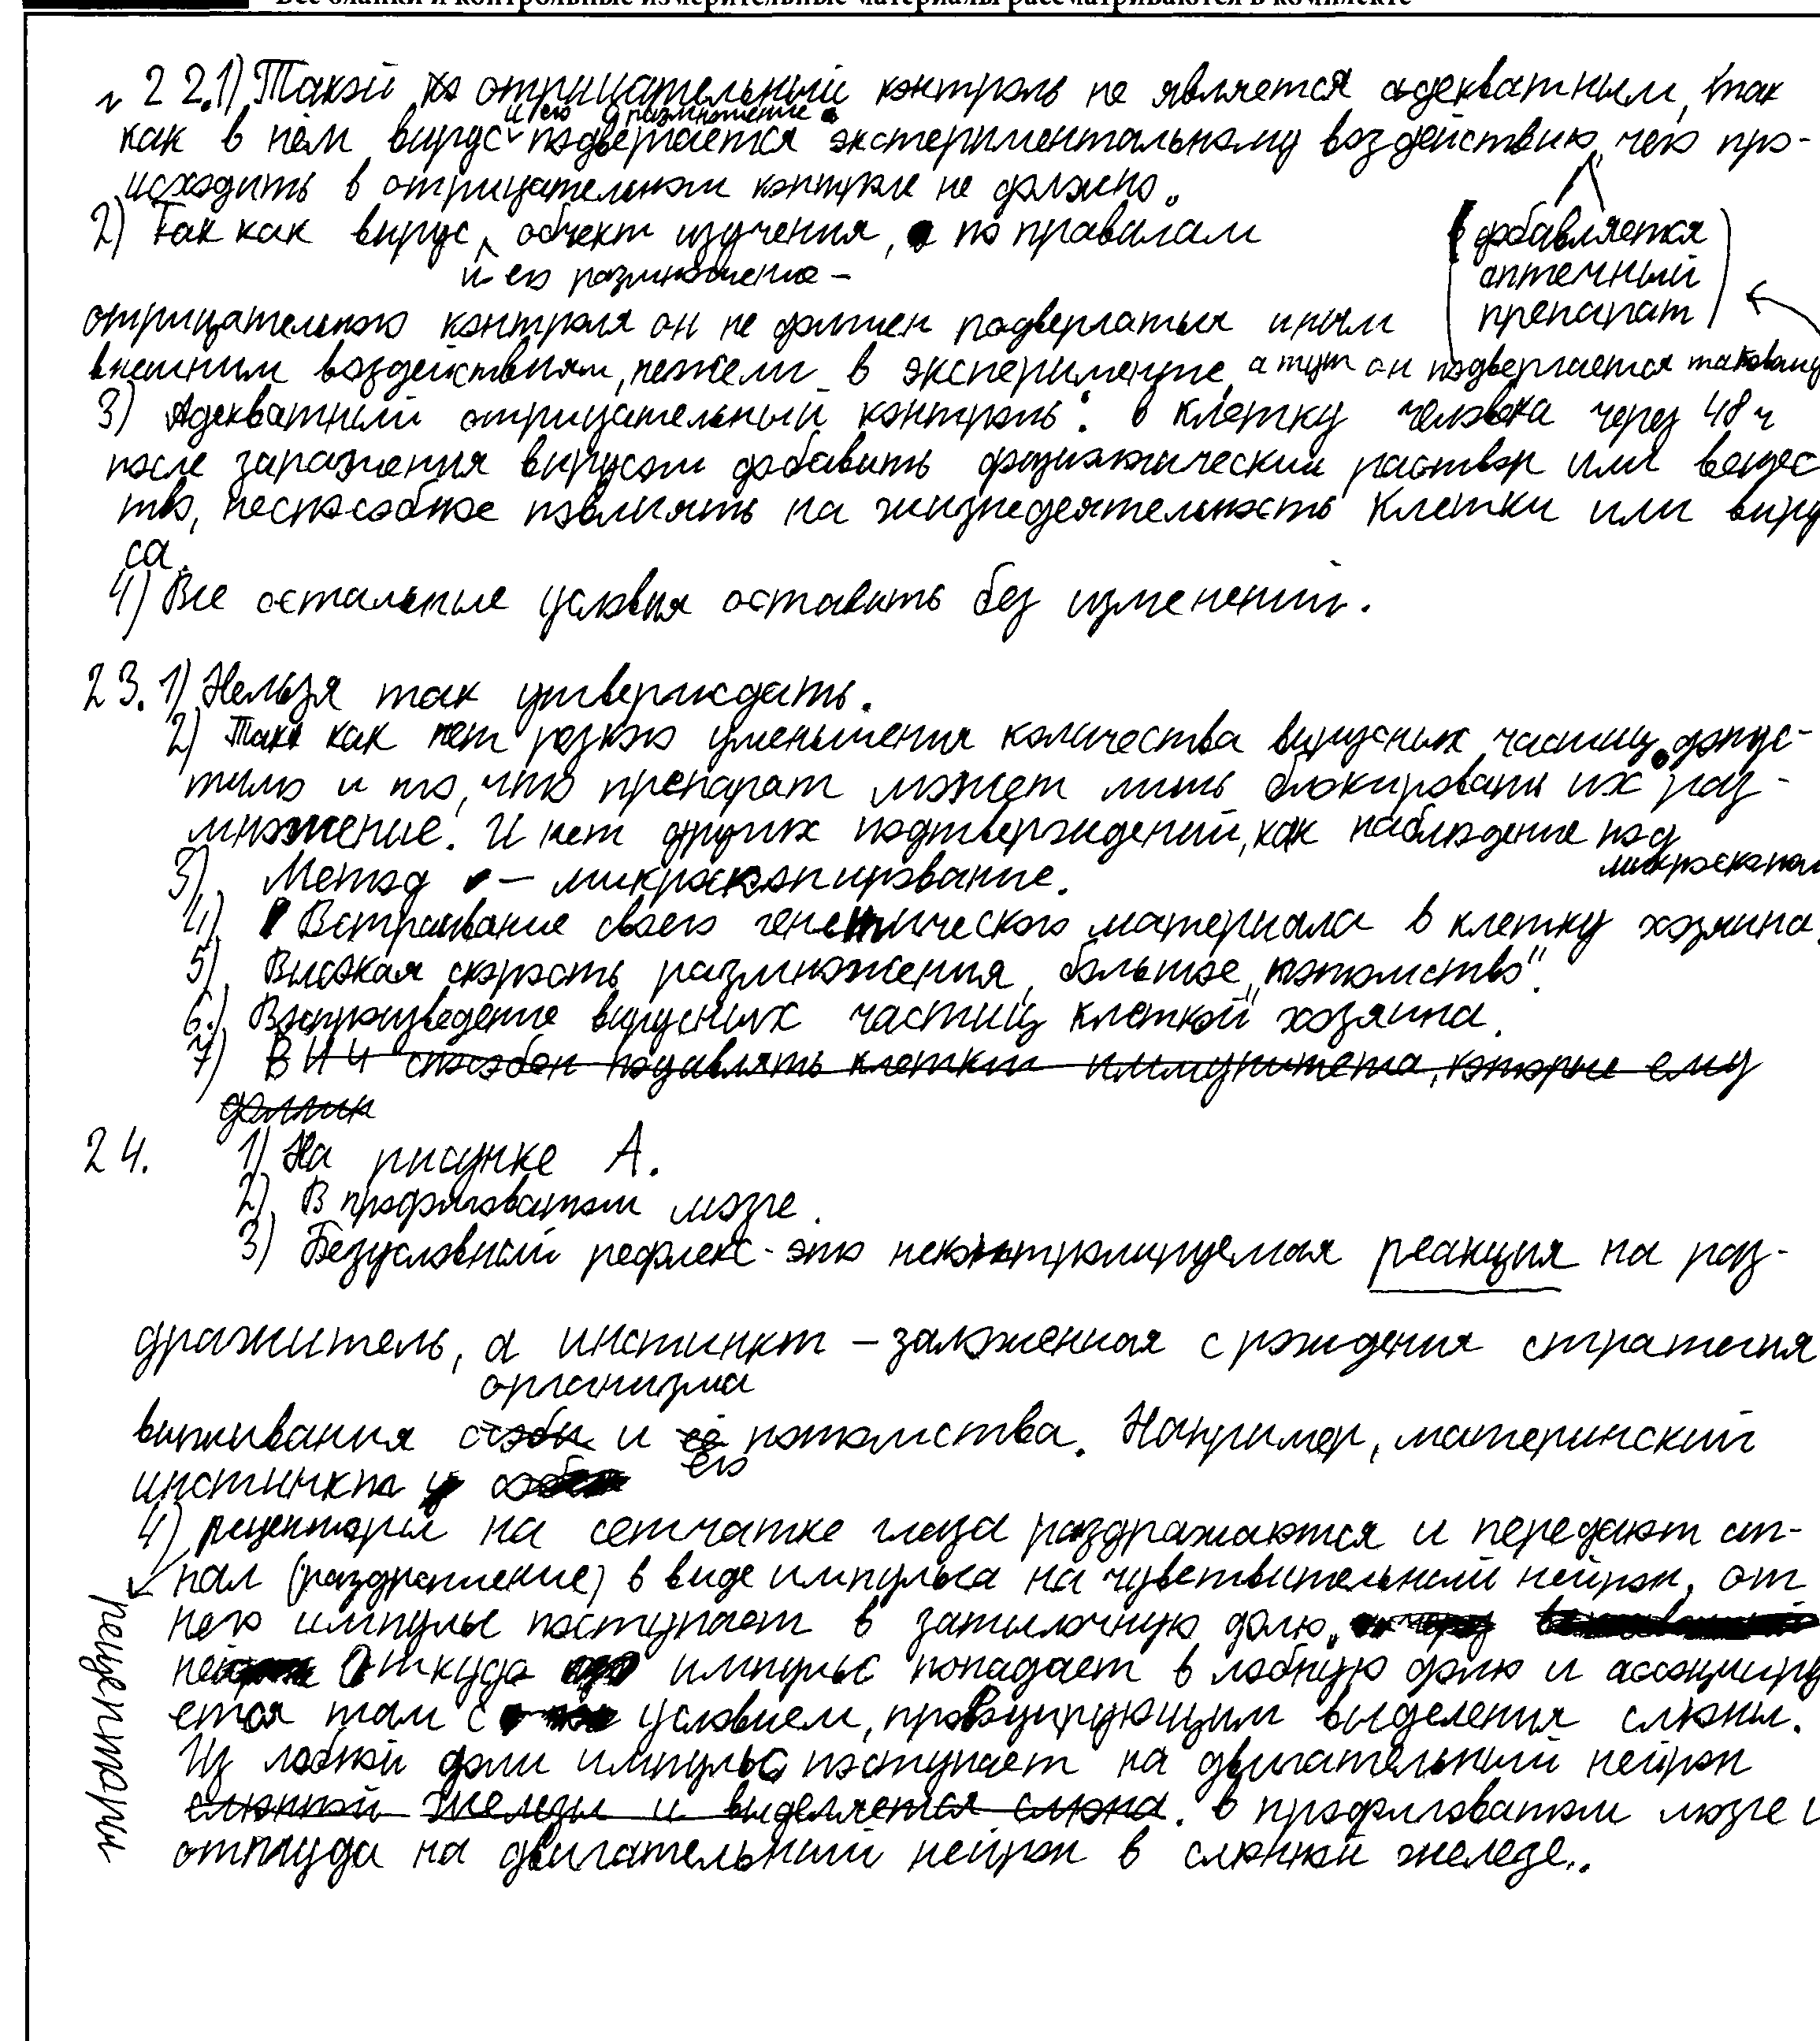 Все бланки и контрольные измерительные материалы рассматриваются в комплекте
22. 1) Такой отрицательный контроль не является адекватным, так
и его размножение
как в нём вирус подвергается экспериментальному воздействию, чего про-
исходить в отрицательном контроле не должно.
2) Так как вирус, объект изучения, по правилам
и его размножение -
добавляется
аптечный
препарат
отрицательного контроля он не должен подвергаться иным
внешним воздействиям, нежели в эксперименте, а тут он подвергается таковому
3) Адекватный отрицательный контроль: в клетку человека через 48 ч
после заражения вирусом добавить физиологический раствор или вещес
тво, неспособное повлиять на жизнедеятельность клетки или виру
са.
4) Все остальные условия оставить без изменений.
23. 1) Нельзя так утверждать.
2) Так как нет резкого уменьшения количества вирусных частиц, допус-
тимо и то, что препарат может лишь блокировать их раз-
множение. И нет других подтверждений, как наблюдение под
микроскопом
3) Метод - микроскопирование.
4) Встраивание своего генетического материала в клетку хозяина.
5) Высокая скорость размножения, большое „потомство".
6.) Воспроизведение вирусных частиц клеткой хозяина.
7) ВИЧ способен подавлять клетки иммунитета, которые ему
должн
24. 1) На рисунке А.
2) В продолговатом мозге.
3) Безусловный рефлекс - это неконтролируемая реакция на раз-
дражитель, а инстинкт - заложенная с рождения стратегия
организма
выживания особи и её потомства. Например, материнский
его
инстинкт
4) рецепторы на сетчатке глаза раздражаются и передают сиг-
нал (раздражение) в виде импульса на чувствительный нейрон, от
него импульс поступает в затылочную долю.
Откуда импульс попадает в лобную долю и ассоцииру
ется там с условием, провоцирующим выделения слюны.
Из лобной доли импульс поступает на двигательный нейрон
слюнной железы и выделяется слюна. в продолговатом мозге и
оттуда на двигательный нейрон в слюнной железе.
рецепторы